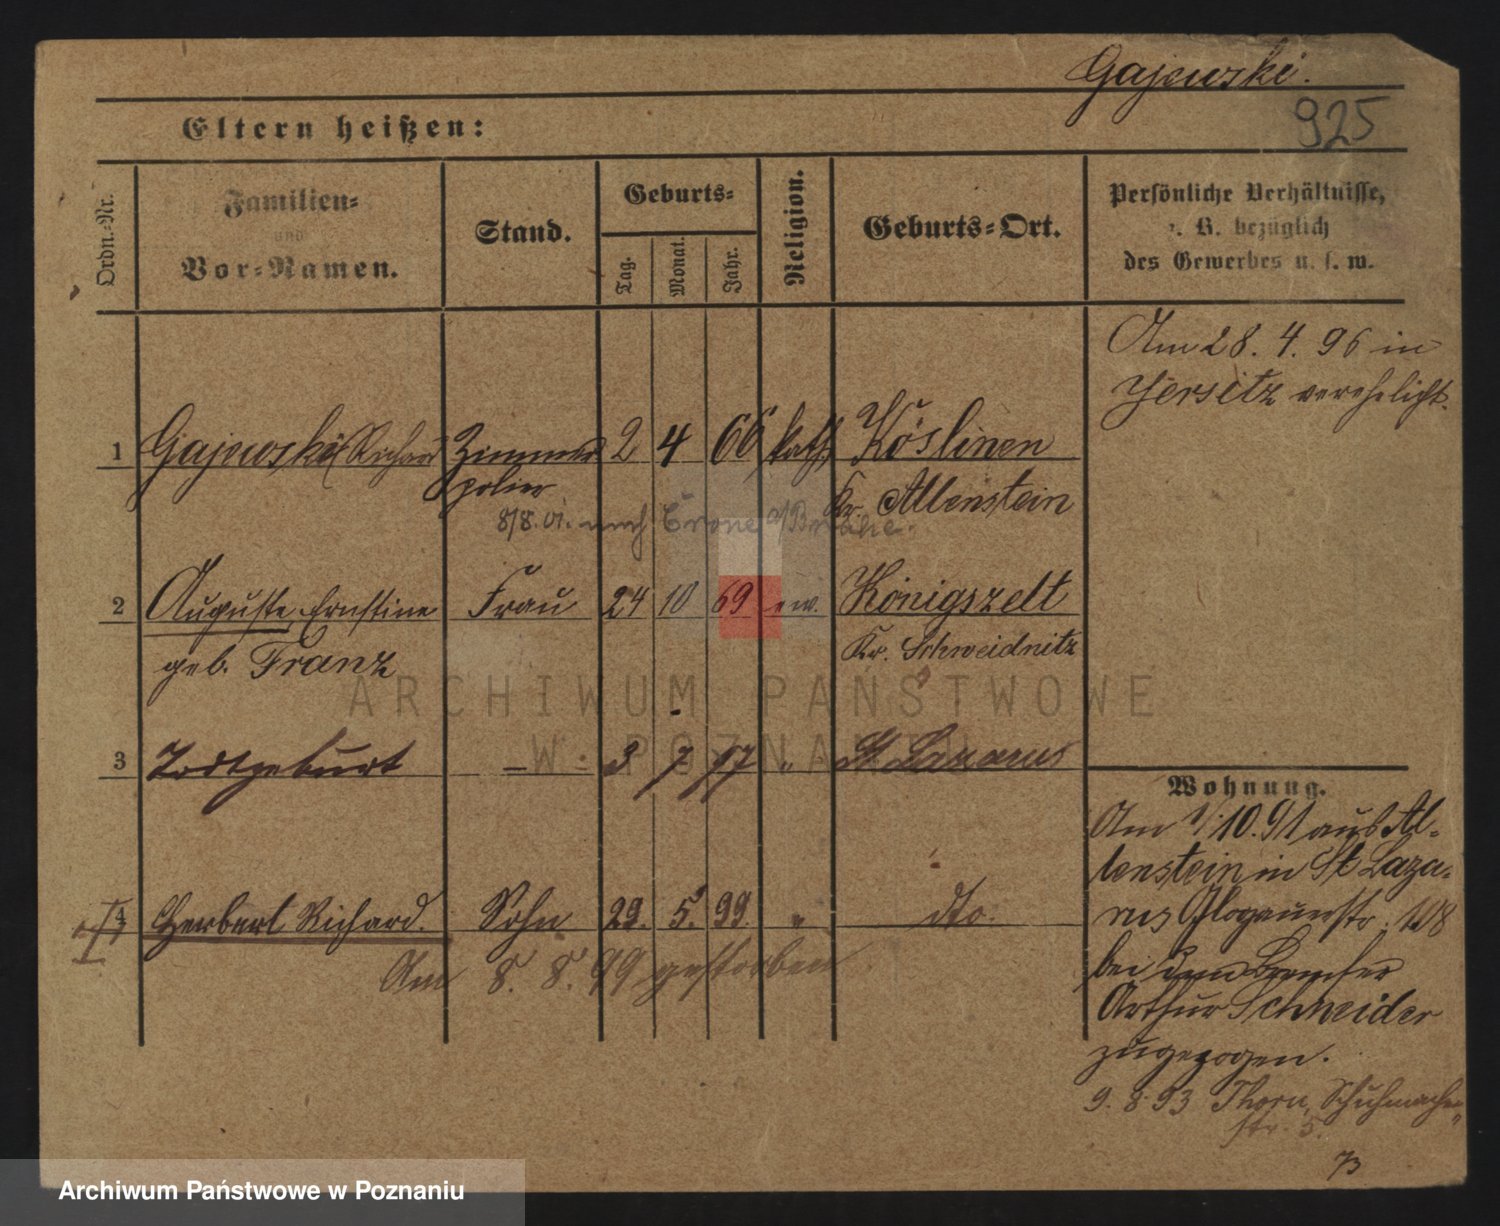 Gajewski.
925
Eltern heißen:
Ordn.-Nr.
Familien-
und
Vor-Namen.
Stand.
Geburts-
Tag.
Monat.
Jahr.
Religion.
Geburts-Ort.
Persönliche Verhältnisse,
z. B. bezüglich
des Gewerbes u. s. w.
Am 28. 4. 96 in
Jersitz verehelicht.
1 Gajewski Richard Zimmer 2 4 66 kath. Köslinen
polier Kr. Allenstein
8/8. 01. nach Crone a/Brahe.
2 Auguste, Ernstine Frau 24 10 69 ev. Königszelt
geb. Franz Kr. Schweidnitz
3 Todtgeburt – 3 7 97 " St Lazarus
4 Herbert Richard. Sohn 29. 5. 99 " dto.
Am 8. 8. 99 gestorben
Wohnung.
Am 1/10. 91 aus Al-
lenstein in St Laza-
rus Glogauerstr. 108
bei dem
Arthur Schneider
zugezogen.
9. 8. 93 Thorn, Schuhmacher-
str. 5.
ARCHIWUM PAŃSTWOWE
W POZNANIU
Archiwum Państwowe w Poznaniu